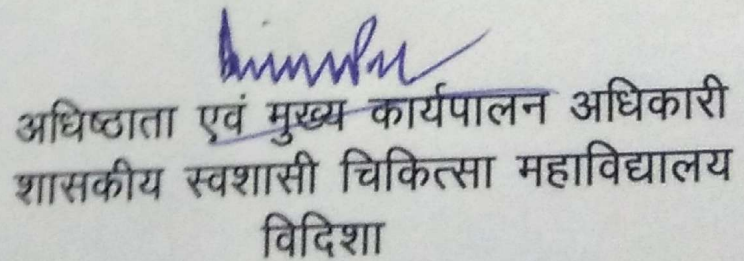 अधिष्ठाता एवं मुख्य कार्यपालन अधिकारी
शासकीय स्वशासी चिकित्सा महाविद्यालय
विदिशा